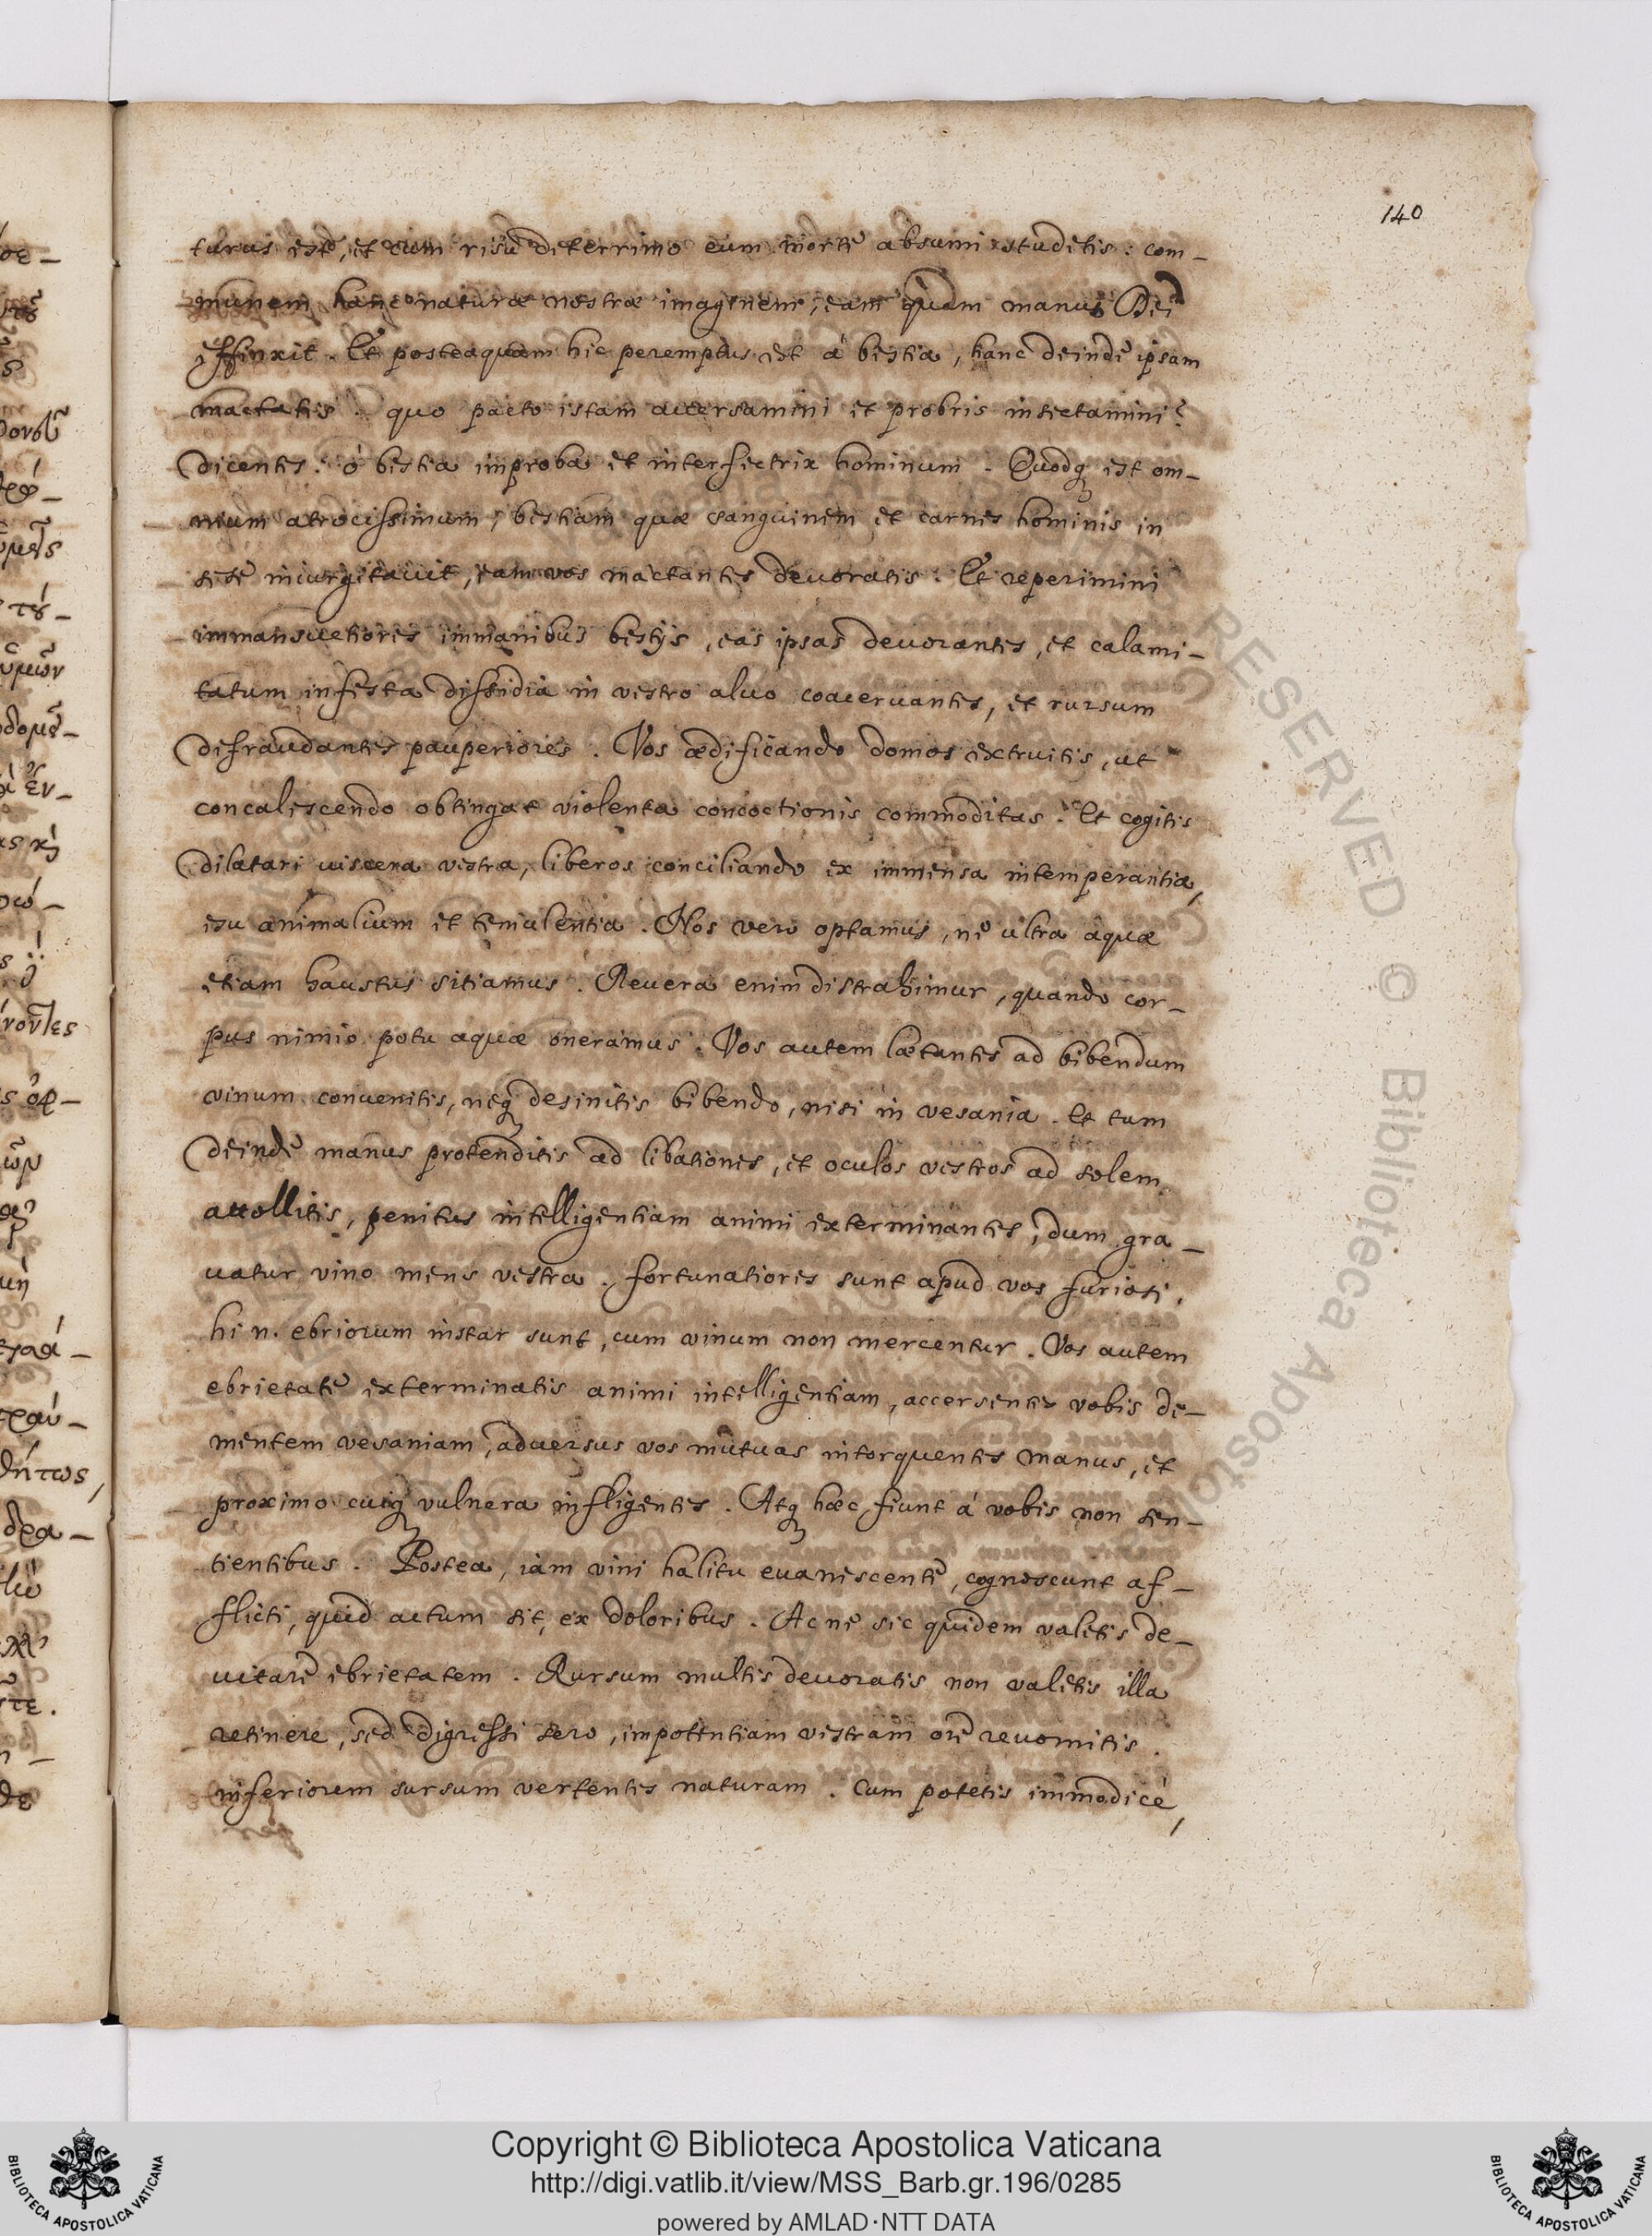 140
turus est, et cum risu deterrimo eum morte absumi studetis: com-
munem hanc naturæ nostræ imaginem, eam quam manus Dei
effinxit. Et posteaquam hic peremptus est à bestia, hanc deinde ipsam
mactatis. quo pacto istam aversamini et probris insectamini?
dicentes: ò bestia improba et interfectrix hominum. Quodq; est om-
nium atrocissimum, bestiam quæ sanguinem et carnes hominis in
sese ingurgitavit, eam vos mactantes devoratis. Et reperimini
immansuetiores immanibus bestijs, eas ipsas devorantes, et calami-
tatum infesta dissidia in vestro alvo coacervantes, et rursum
defraudantes pauperiores. Vos ædificando domos extruitis, ut
concalescendo obtingat violenta concoctionis commoditas. Et cogitis
dilatari viscera vestra, liberos conciliando ex immensa intemperantia,
esu animalium et temulentia. Nos vero optamus, ne ultra aquæ
etiam haustus sitiamus. Revera enim distrahimur, quando cor-
pus nimio potu aquæ oneramus. Vos autem lætantes ad bibendum
vinum convenitis, neq; desinitis bibendo, nisi in vesania. Et tum
deinde manus protenditis ad libationes, et oculos vestros ad solem
attollitis, penitus intelligentiam animi exterminantes, dum gra-
vatur vino mens vestra. fortunatiores sunt apud vos furiosi,
hi n. ebriorum instar sunt, cum vinum non mercentur. Vos autem
ebrietate exterminatis animi intelligentiam, accersentes vobis de-
mentem vesaniam, adversus vos mutuas intorquentes manus, et
proximo cuiq; vulnera infligentes. Atq; hæc fiunt à vobis non sen-
tientibus. Postea, iam vini halitu evanescente, cognoscunt af-
flicti, quid actum sit, ex doloribus. Ac ne sic quidem valetis de-
vitare ebrietatem. Rursum multis devoratis non valetis illa
retinere, sed digressi sero, impotentiam vestram ore revomitis.
inferiorem sursum vertentes naturam. Cum potetis immodicè,
Copyright © Biblioteca Apostolica Vaticana
http://digi.vatlib.it/view/MSS_Barb.gr.196/0285
powered by AMLAD·NTT DATA
BIBLIOTECA APOSTOLICA VATICANA
BIBLIOTECA APOSTOLICA VATICANA